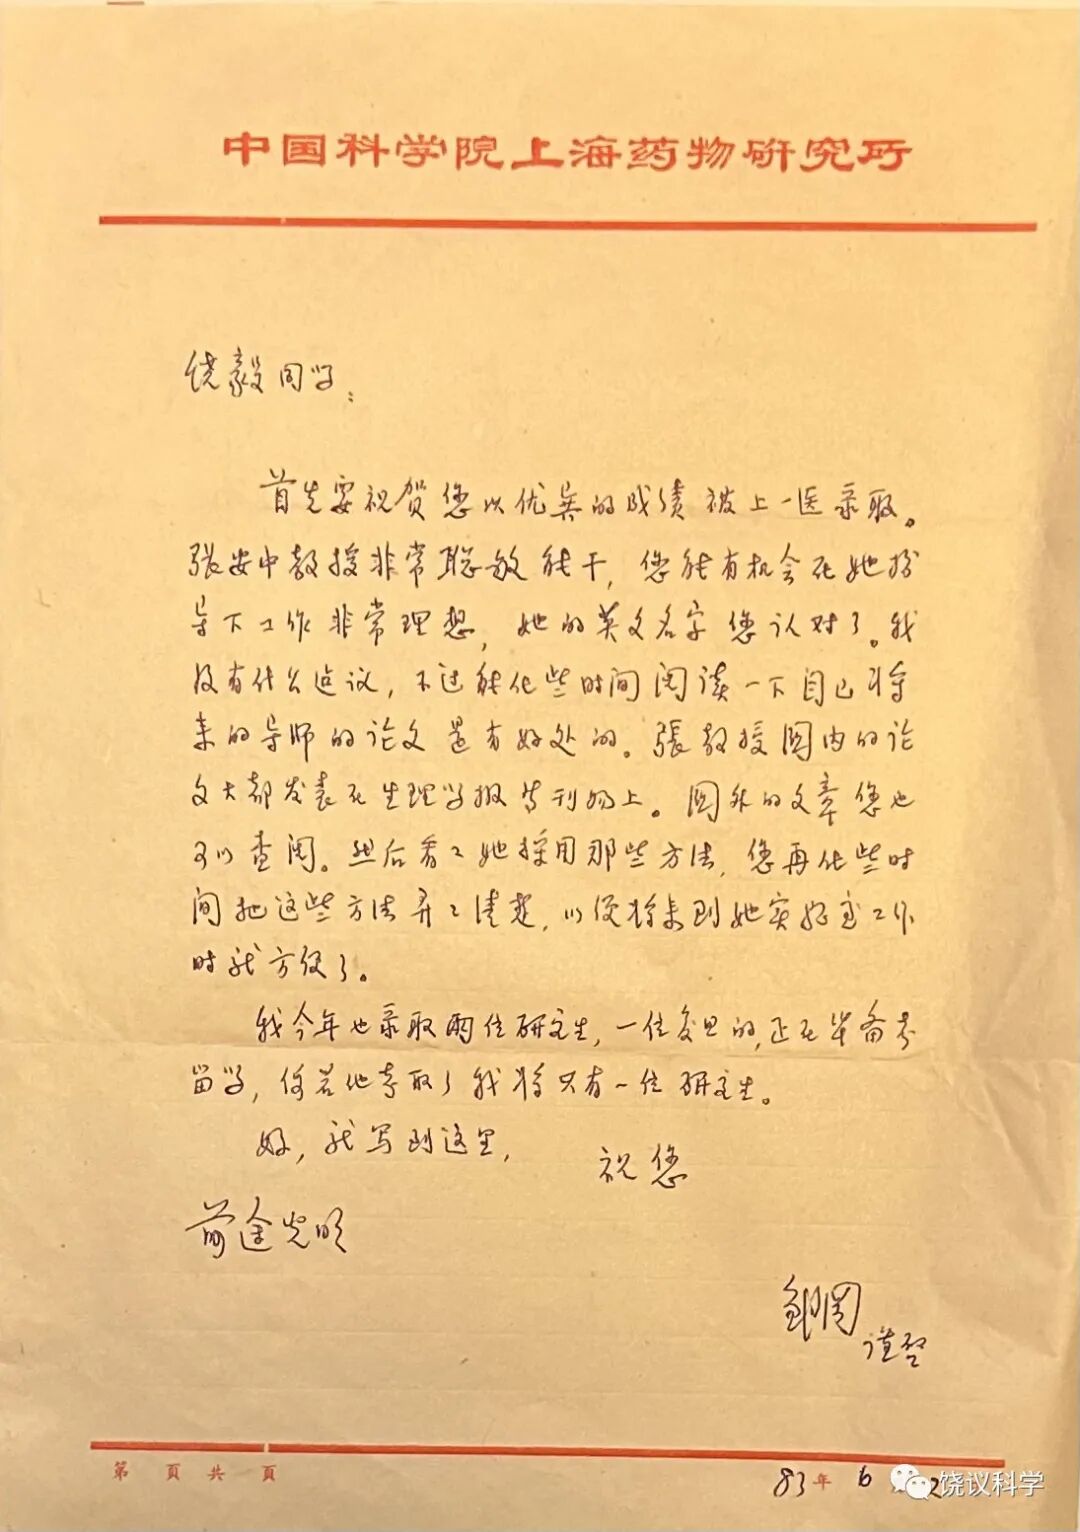 中国科学院上海药物研究所
饶毅同学：
首先要祝贺您以优异的成绩被上一医录取。
张安中教授非常聪敏能干，您能有机会在她指
导下工作非常理想，她的英文名字您认对了。我
没有什么建议，不过能化些时间阅读一下自己将
来的导师的论文是有好处的。張教授国内的论
文大都发表在生理学报等刊物上。国外的文章您也
可以查阅。然后看看她採用那些方法，您再化些时
间把这些方法弄弄清楚，以便将来到她实验室工作
时就方便了。
我今年也录取两位研究生，一位复旦的，正在准备考
留学，倘若他考取了我将只有一位研究生。
好，就写到这里，
祝您
前途光明
邹冈
谨启
第 页 共 页
83年 6
饶议科学